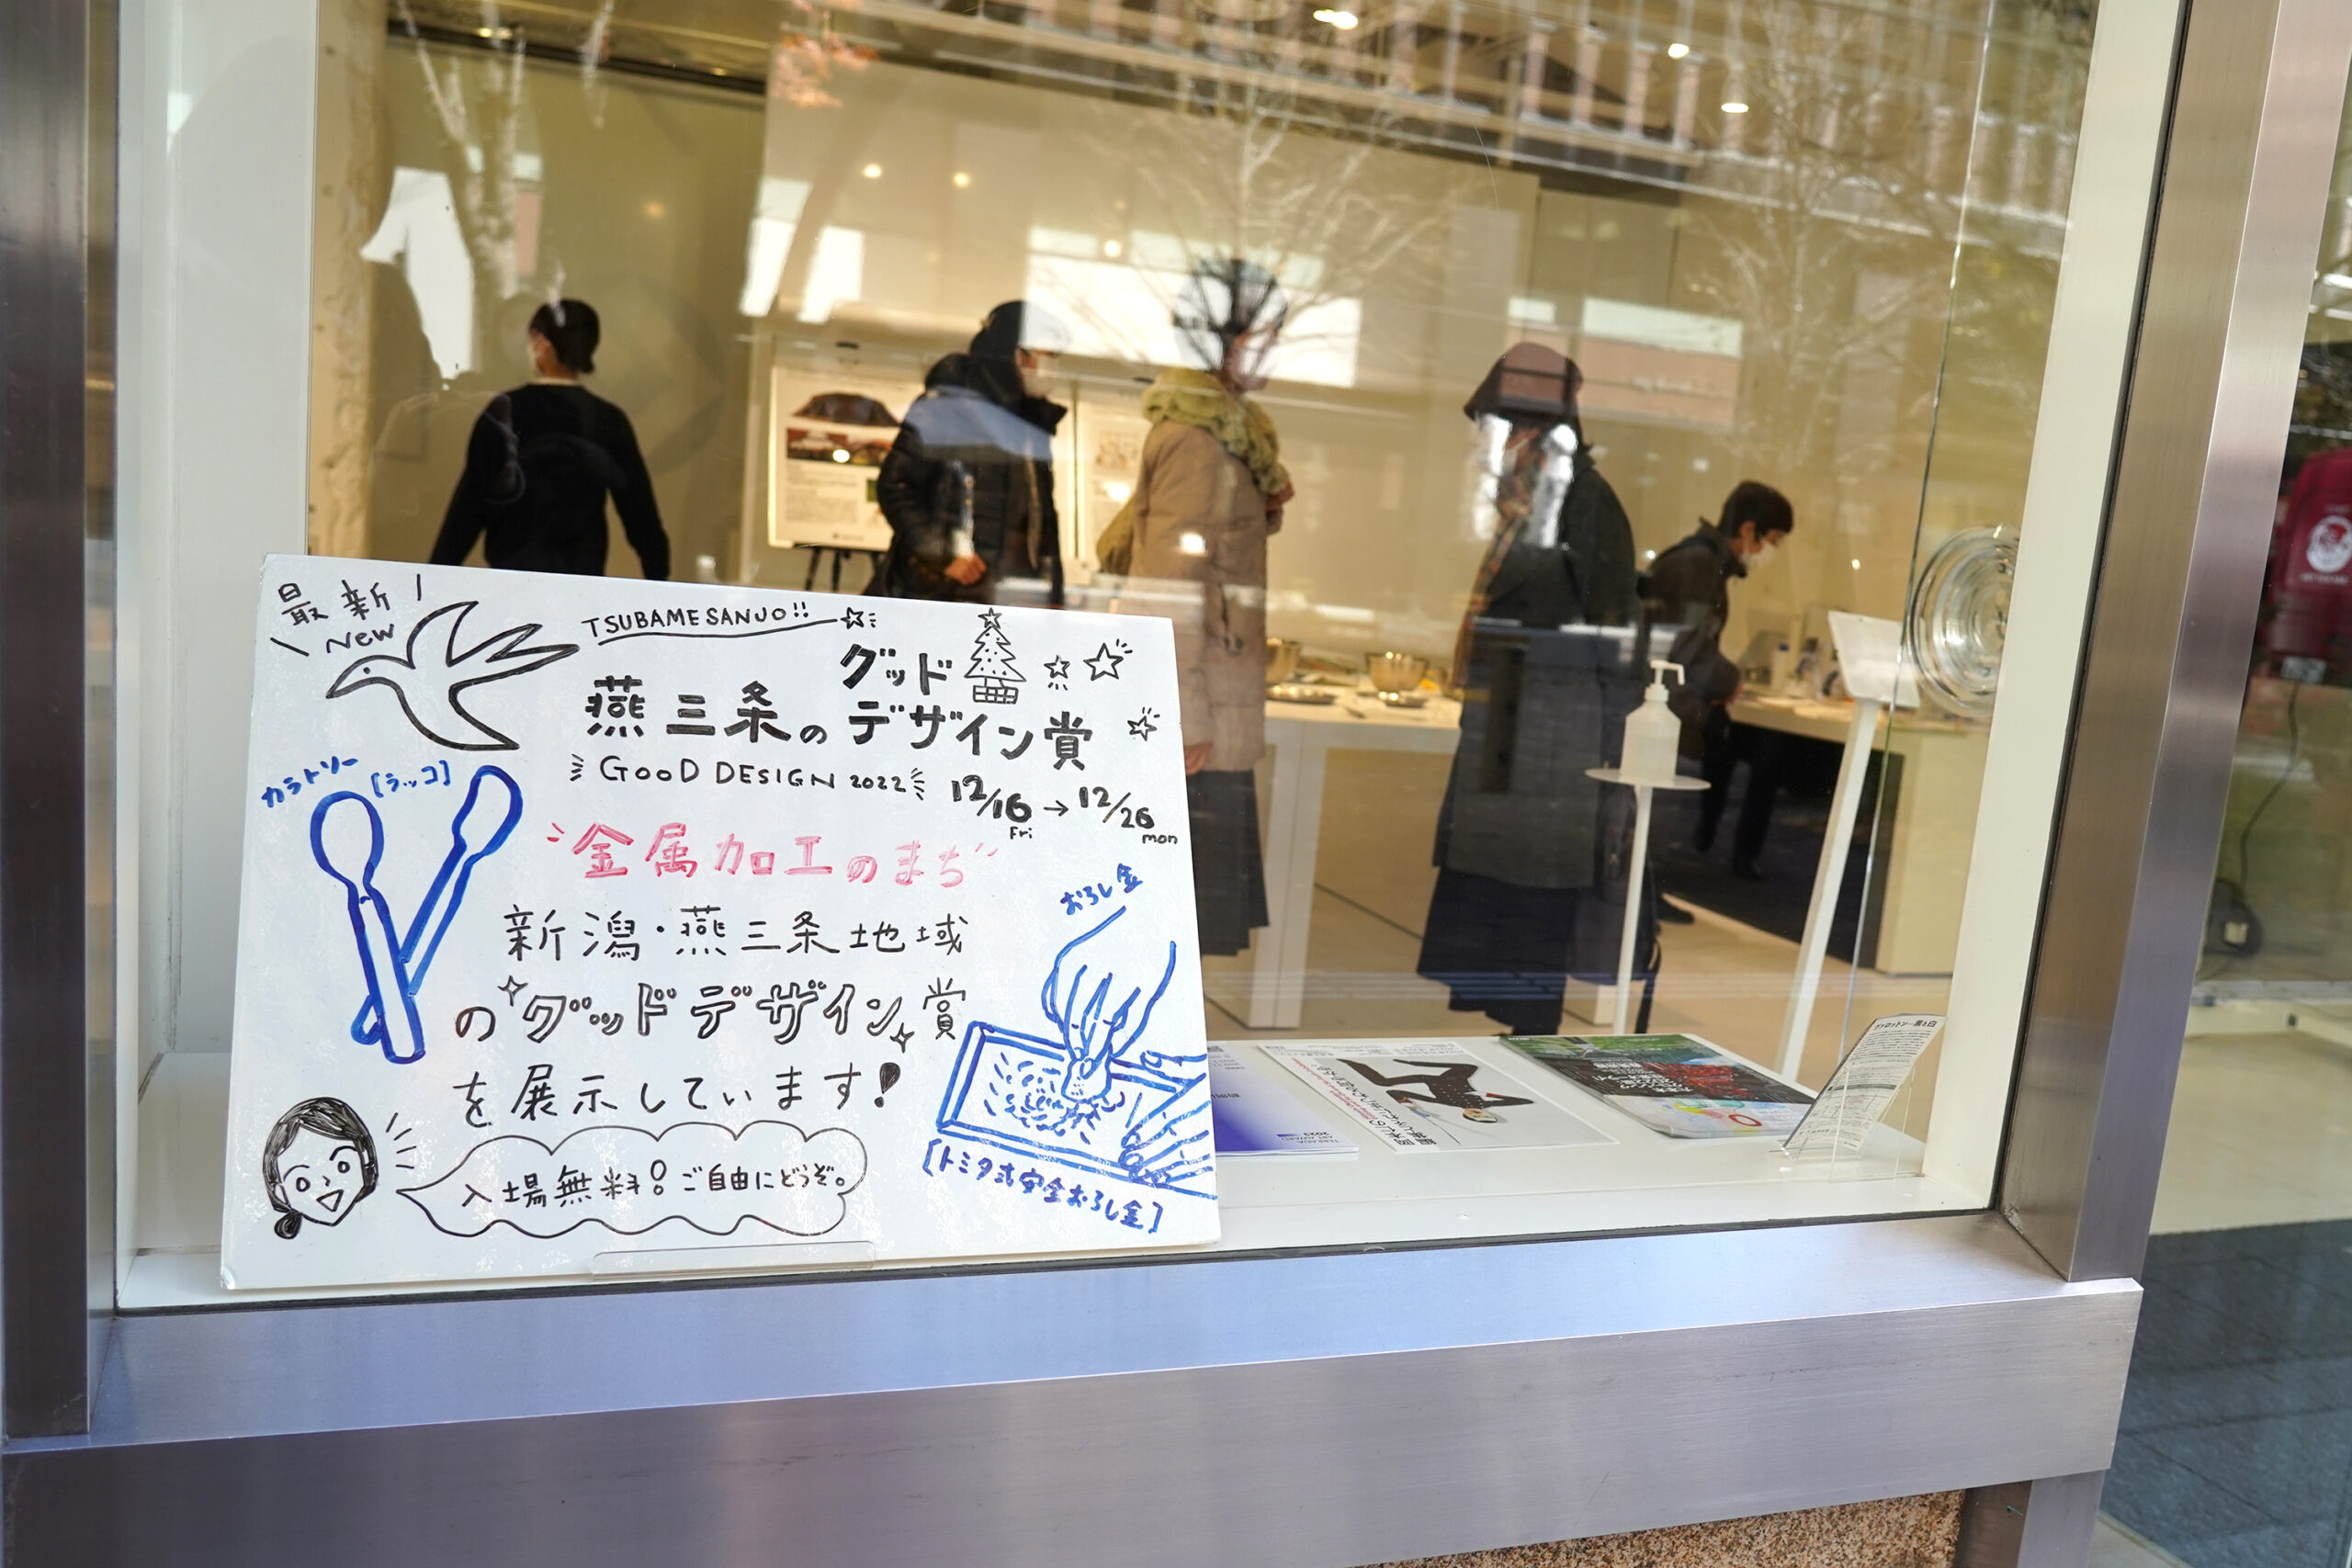 最新
New
TSUBAMESANJO!!
グッド
燕三条のデザイン賞
GOOD DESIGN 2022
12/16 → 12/26
Fri
mon
カラトリー
[ラッコ]
"金属加工のまち"
新潟・燕三条地域
のグッドデザイン賞
を展示しています!
入場無料!ご自由にどうぞ。
おろし金
[トミタ式安全おろし金]